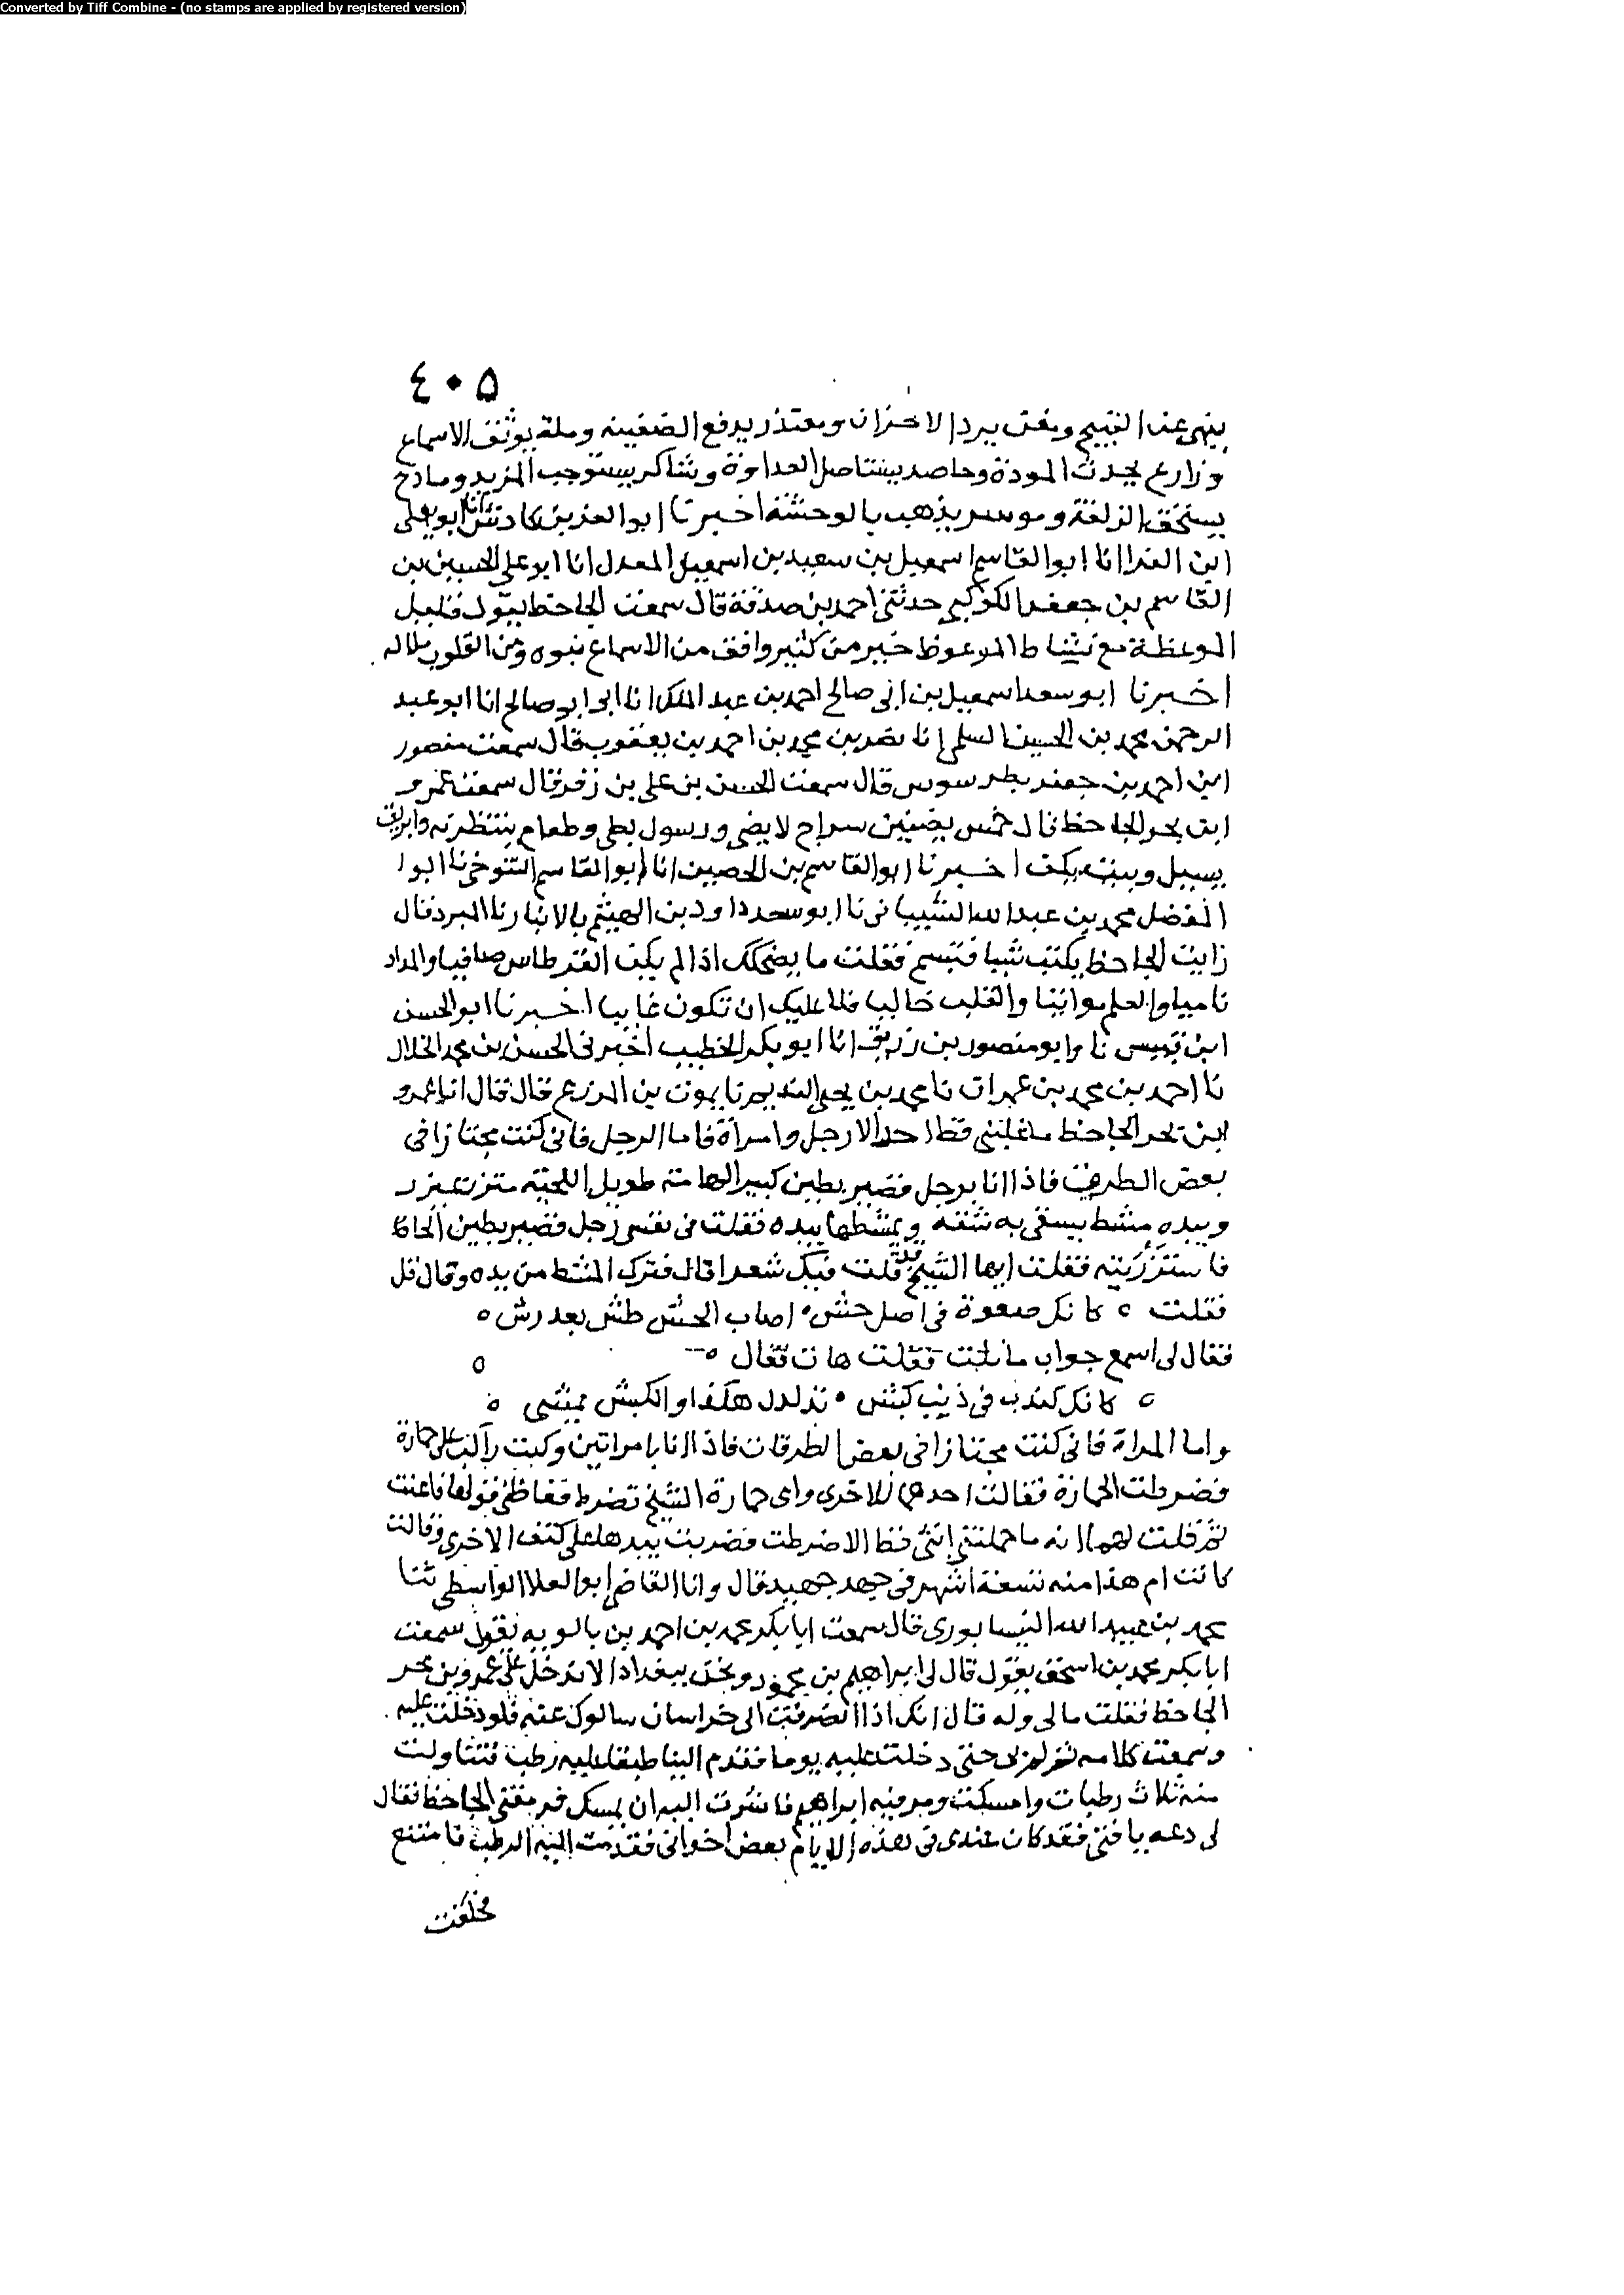 Converted by Tiff Combine - (no stamps are applied by registered version)
٤٠٥
ينهى عن القبيح ومغن يرد الاحزان ومعتذر يدفع الضغينه وملة يونق الاسماع
وزارع يحدث المودة وحاصد يستاصل العداوة وشاكر يستوجب المزيد ومادح
يستحق الزلفة ومونس يذهب بالوحشة اخبرنا ابو العز بن كادش انا ابو يعلى
ابن الفرا انا ابو القاسم اسمعيل بن سعيد بن اسمعيل المعدل انا ابو على الحسين بن
القاسم بن جعفر الكوكبي حدثني احمد بن صدقة قال سمعت الجاحظ يقول قليل
الموعظة مع نشاط الموعوظ خير من كثير وافق من الاسماع نبوه ومن القلوب ملاله
اخبرنا ابو سعد اسمعيل بن ابي صالح احمد بن عبد الملك انا ابي ابو صالح انا ابو عبد
الرحمن محمد بن الحسين السلمى انا نصر بن محمد بن احمد بن يعقوب قال سمعت منصور
ابن احمد بن جعفر بطرسوس قال سمعت الحسن بن على بن زفر قال سمعت عمرو
ابن بحر الجاحظ قال خمس يضنين سراج لا يضي ورسول بطى وطعام ينتظر به وابريق
يسيل وبيت يكف اخبرنا ابو القاسم بن الحصين انا ابو القاسم التنوخي نا ابو ا
المفضل محمد بن عبد الله الشيباني نا ابو سعد داود بن الهيثم بالانبار نا المبرد قال
رايت الجاحظ يكتب شيا فتبسم فقلت ما يضحكك اذا لم يكن القرطاس صافيا والمداد
ناميا والقلم مواتيا والقلب خاليا فلا عليك ان تكون غايبا اخبرنا ابو الحسن
ابن قبيس نا وابو منصور بن زريق انا ابو بكر الخطيب اخبرني الحسن بن محمد الخلال
نا احمد بن محمد بن عمران نا محمد بن يحيى النديم نا يموت بن المزرع قال قال لنا عمرو
ابن بحر الجاحظ ما غلبني قط احد الا رجل وامراة فاما الرجل فاني كنت مجتازا في
بعض الطريق فاذا انا برجل قصير بطين كبير الهامة طويل اللحية متزر بميزر
وبيده مشط يسقى به شقه ويمشطها بيده فقلت في نفسي رجل قصير بطين الحا
فاستزريته فقلت ايها الشيخ قد قلت فيك شعرا قال فترك المشط من يده وقال قل
فقلت ه كانك صعوة في اصل حش ٠ اصاب الحش طش بعد رش ه
فقال لي اسمع جواب ما قلت فقلت هات فقال ه
ه كانك كندب في ذنب كبش ٠ تدلدل هكذا والكبش يمشي ه
واما المراة فاني كنت مجتازا في بعض الطرقات فاذا انا بامراتين وكنت راكبا على حمارة
فضرطت الحمارة فقالت احدهما للاخرى واى حمارة الشيخ تضرط فغاظني قولها فاعننت
ثم قلت لهما انه ما حملتني انثى قط الا ضرطت فضربت بيدها على كتف الاخرى وقالت
كانت ام هذا منه تسعة اشهر في جهد جهيد قال وانا القاضي ابو العلا الواسطي ثنا
محمد بن عبيد الله النيسابوري قال سمعت ابا بكر محمد بن احمد بن بالويه يقول سمعت
ابا بكر محمد بن اسحق يقول قال لي ابراهيم بن محمود ونحن ببغداد الا تدخل على عمرو بن بحر
الجاحظ فقلت مالى وله قال انك اذا انصرفت الى خراسان سالوك عنه فلو دخلت عليه
وسمعت كلامه ثم لم يزل بى حتى دخلت عليه يوما فقدم الينا طبقا عليه رطب فتناولت
منه ثلاث رطبات وامسكت ومر فيه ابراهيم فاشرت اليه ان يمسك فرمقني الجاحظ فقال
لي دعه يا فتى فقد كان عندى في هذه الايام بعض اخواني فقدمت اليه الرطب فامتنع
فحلفت